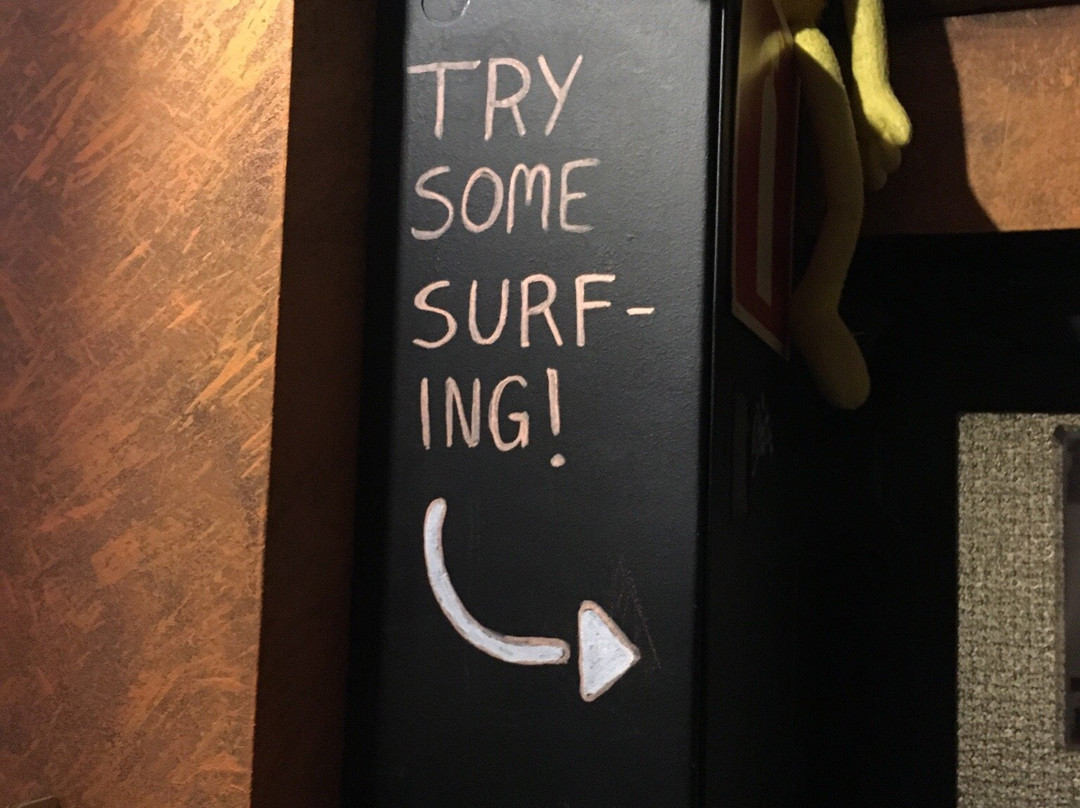 TRY
SOME
SURF-
ING!